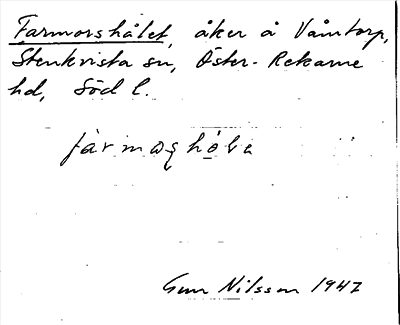 Farmorshålet, åker å Våmtorp,
Stenkvista sn, Öster-Rekarne
hd, Söd l.
Gun Nilsson 1947